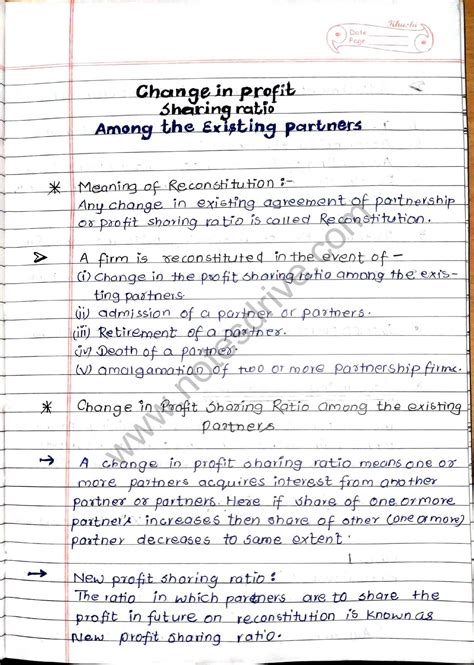 Date
Page
Change in profit
Sharing ratio
Among the Existing partners
* Meaning of Reconstitution :-
Any change in existing agreement of partnership
or profit sharing ratio is called Reconstitution.
➢ A firm is reconstituted in the event of -
(i) Change in the profit sharing ratio among the exis-
ting partners
(ii) admission of a partner or partners.
(iii) Retirement of a partner.
(iv) Death of a partner.
(v) amalgamation of two or more partnership firms.
* Change in Profit Sharing Ratio among the existing
Partners
→ A change in profit sharing ratio means one or
more partners acquires interest from another
partner or partners. Here if share of one or more
partner's increases then share of other (one or more)
partner decreases to same extent.
→ New profit sharing ratio :
The ratio in which partners are to share the
profit in future on reconstitution is known as
New profit sharing ratio.
www.notesdrive.com